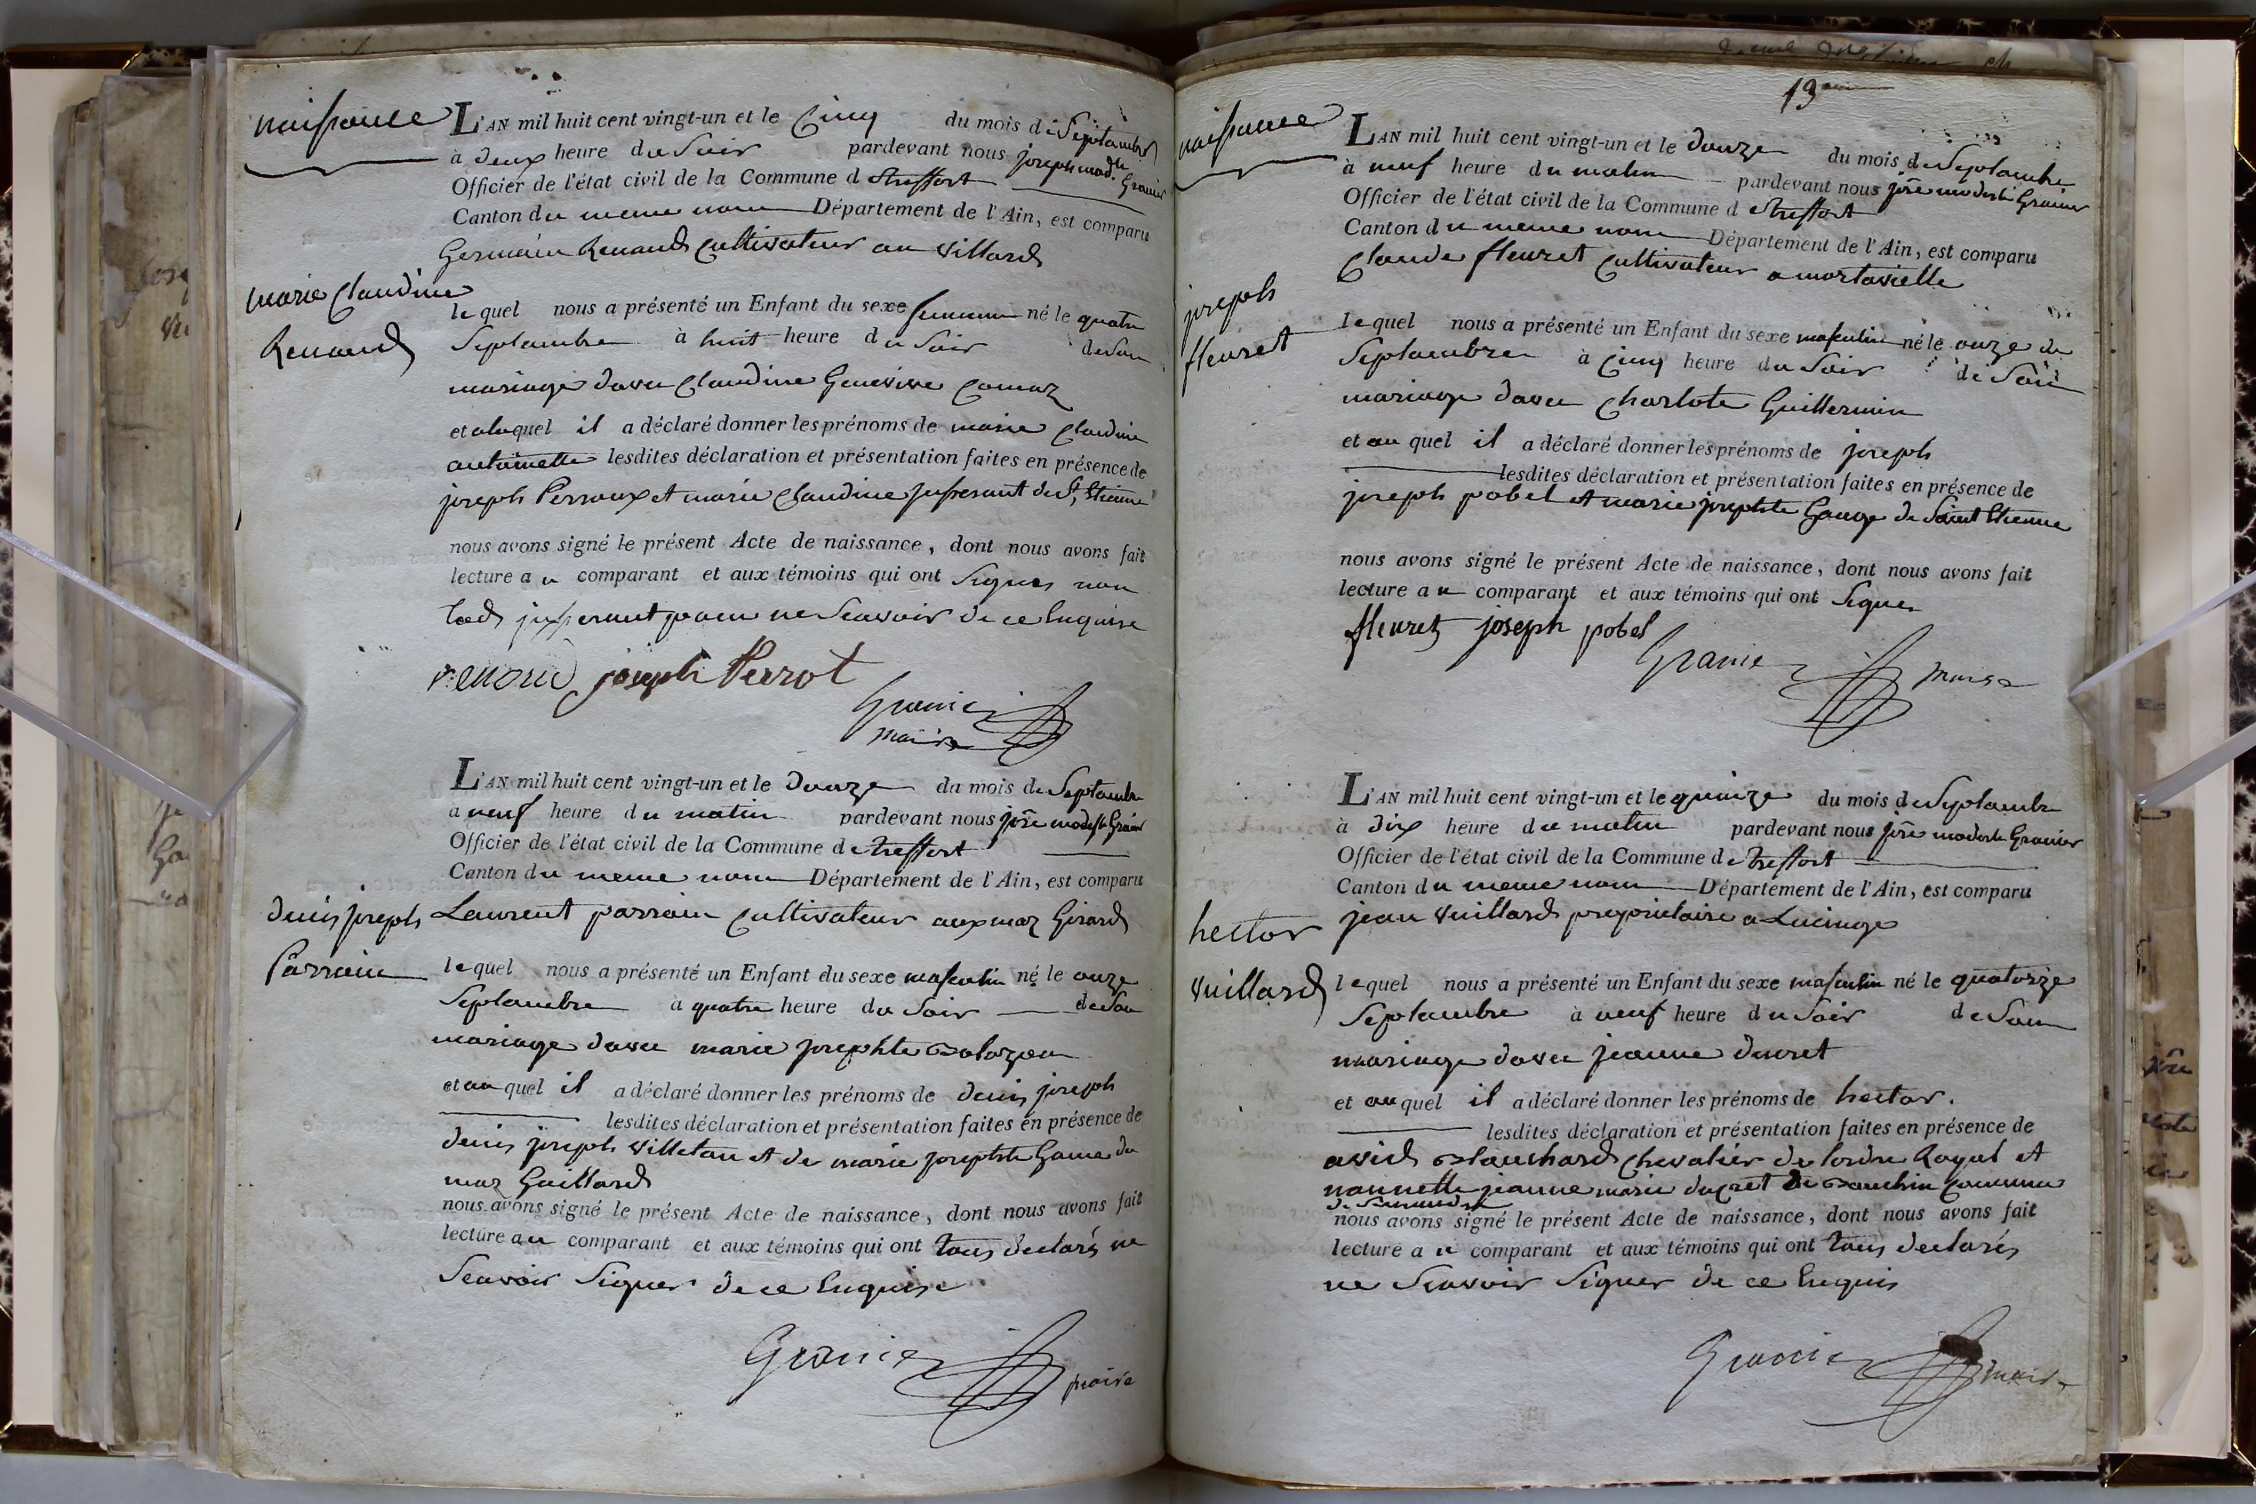 naissance
L'AN mil huit cent vingt-un et le Cinq du mois de Septambre
à deux heure du Soir pardevant nous joseph mod.te Granier
Officier de l'état civil de la Commune de treffort
Canton du meme nom Département de l'Ain, est comparu
Germain Renaud Cultivateur au Villard
marie Claudine
Renaud
lequel nous a présenté un Enfant du sexe femenin né le quatre
Septambre à huit heure du Soir de Son
mariage davec Claudine Genevive
et alaquel il a déclaré donner les prénoms de marie Claudine
antoinette lesdites déclaration et présentation faites en présence de
joseph Perroux et marie Claudine jufferant de St Etienne
nous avons signé le présent Acte de naissance, dont nous avons fait
lecture au comparant et aux témoins qui ont Signés non
lad. jufferant pour ne Scavoir de ce Enquise
renoud joseph Perrot
Granier
maire
L'AN mil huit cent vingt-un et le douze du mois de Septambre
a neuf heure du matin pardevant nous jph modeste Granier
Officier de l'état civil de la Commune de treffort
Canton du meme nom Département de l'Ain, est comparu
denis joseph
Parrain
Laurent parrain Cultivateur aux maz Girard
lequel nous a présenté un Enfant du sexe masculin né le onze
Septambre à quatre heure du Soir de Son
mariage davec marie josephte
et au quel il a déclaré donner les prénoms de denis joseph
lesdites déclaration et présentation faites en présence de
denis joseph Villetan et de marie josephte Game du
maz Gaillard
nous avons signé le présent Acte de naissance, dont nous avons fait
lecture au comparant et aux témoins qui ont tous declarés ne
Scavoir Signer de ce Enquise
Granier
maire
13
naissance
L'AN mil huit cent vingt-un et le douze du mois de Septambre
à neuf heure du matin pardevant nous jph modeste Granier
Officier de l'état civil de la Commune de treffort
Canton du meme nom Département de l'Ain, est comparu
Claude fleuret Cultivateur a mortavielle
joseph
fleuret
lequel nous a présenté un Enfant du sexe masculin né le onze de
Septambre à Cinq heure du Soir de Son
mariage davec Charlote Guillermin
et au quel il a déclaré donner les prénoms de joseph
lesdites déclaration et présentation faites en présence de
joseph pobel et marie josephte Gouge de Saint Etienne
nous avons signé le présent Acte de naissance, dont nous avons fait
lecture au comparant et aux témoins qui ont Signes
fleuret joseph pobel
Granier maire
L'AN mil huit cent vingt-un et le quinze du mois de Septambre
à dix heure du matin pardevant nous jph modeste Granier
Officier de l'état civil de la Commune de treffort
Canton du meme nom Département de l'Ain, est comparu
hector
Vuillard
jean Vuillard proprietaire a Lucinge
lequel nous a présenté un Enfant du sexe masculin né le quatorze
Septambre à neuf heure du Soir de Son
mariage davec jeanne ducret
et au quel il a déclaré donner les prénoms de hector.
lesdites déclaration et présentation faites en présence de
david Blanchard Chevalier de lordre Royal et
nannette jeanne marie ducret de commune
de
nous avons signé le présent Acte de naissance, dont nous avons fait
lecture au comparant et aux témoins qui ont tous declarés
ne Scavoir Signer de ce Enquis
Granier
maire